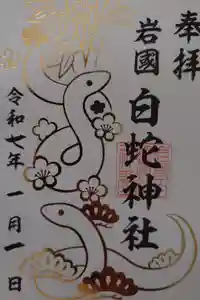 奉拝
岩國
白蛇神社
令和七年一月一日